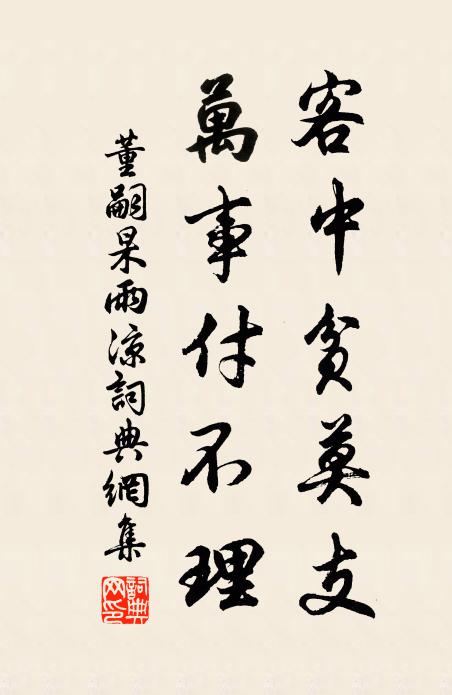 客中貧莫支
萬事付不理
董嗣杲雨涼詞典網集
詞典網印